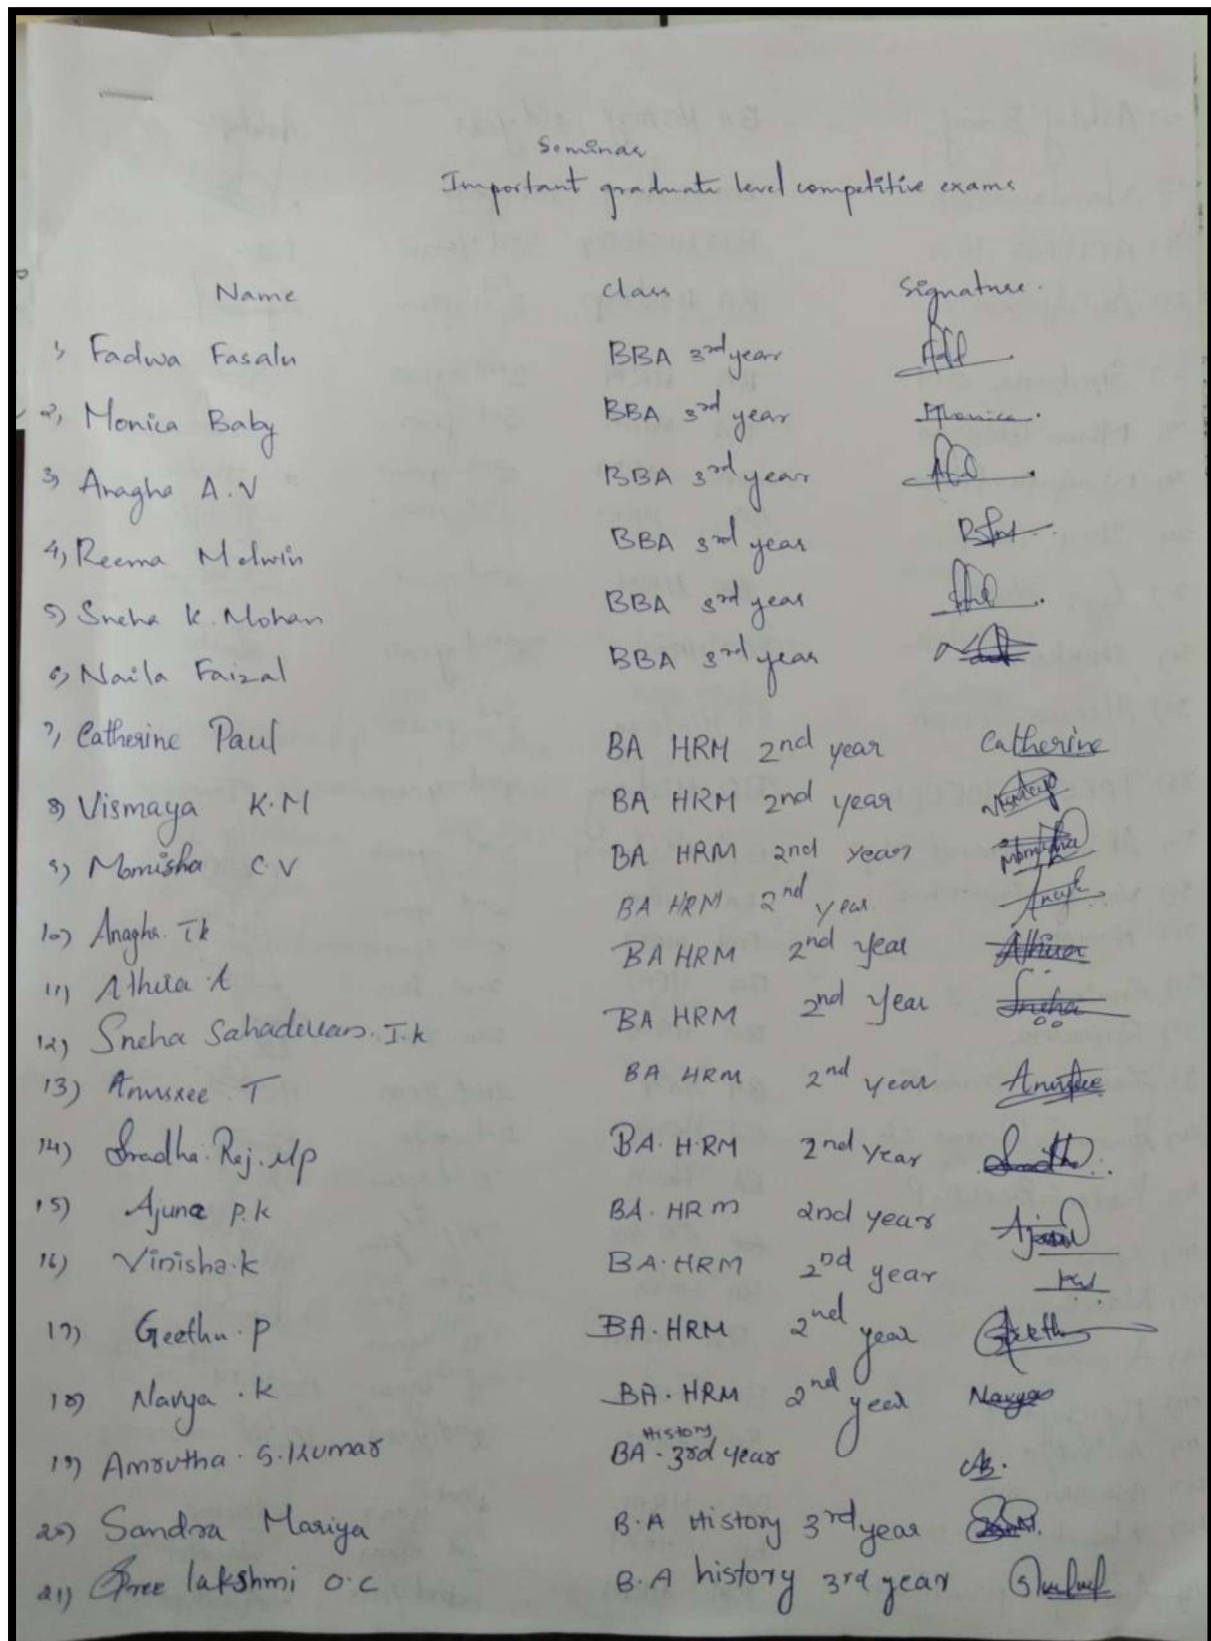 Seminar
Important graduate level competitive exams
Name Class Signature.
1, Fadwa Fasalu BBA 3rd year
2, Monica Baby BBA 3rd year Monica.
3, Anagha A.V BBA 3rd year
4, Reema Melwin BBA 3rd year
5) Sneha K. Mohan BBA 3rd year
6, Naila Faizal BBA 3rd year
7, Catherine Paul BA HRM 2nd year Catherine
8) Vismaya K.M BA HRM 2nd year Vismaya
9) Momisha C.V BA HRM 2nd year Momisha
10) Anagha. T k BA HRM 2nd year
11) Athira A BA HRM 2nd year Athira
12) Sneha Sahadevan. T.k BA HRM 2nd year Sneha
13) Anusree T BA HRM 2nd year Anusree
14) Sradha. Raj. Mp BA. HRM 2nd year
15) Ajuna P.k BA. HRM 2nd year
16) Vinisha.k BA.HRM 2nd year
17) Geethu. P BA.HRM 2nd year Geethu
18) Navya .k BA.HRM 2nd year Navya
19) Amrutha. S.Kumar BA History 3rd year
20) Sandra Mariya B.A History 3rd year
21) Sree lakshmi O.C B.A history 3rd year